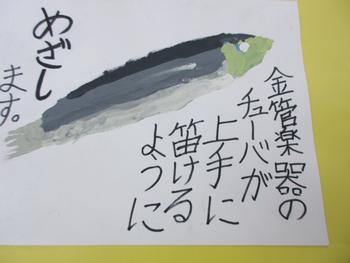 金管楽器の
チューバが
上手に
笛ける
ように
めざし
ます。